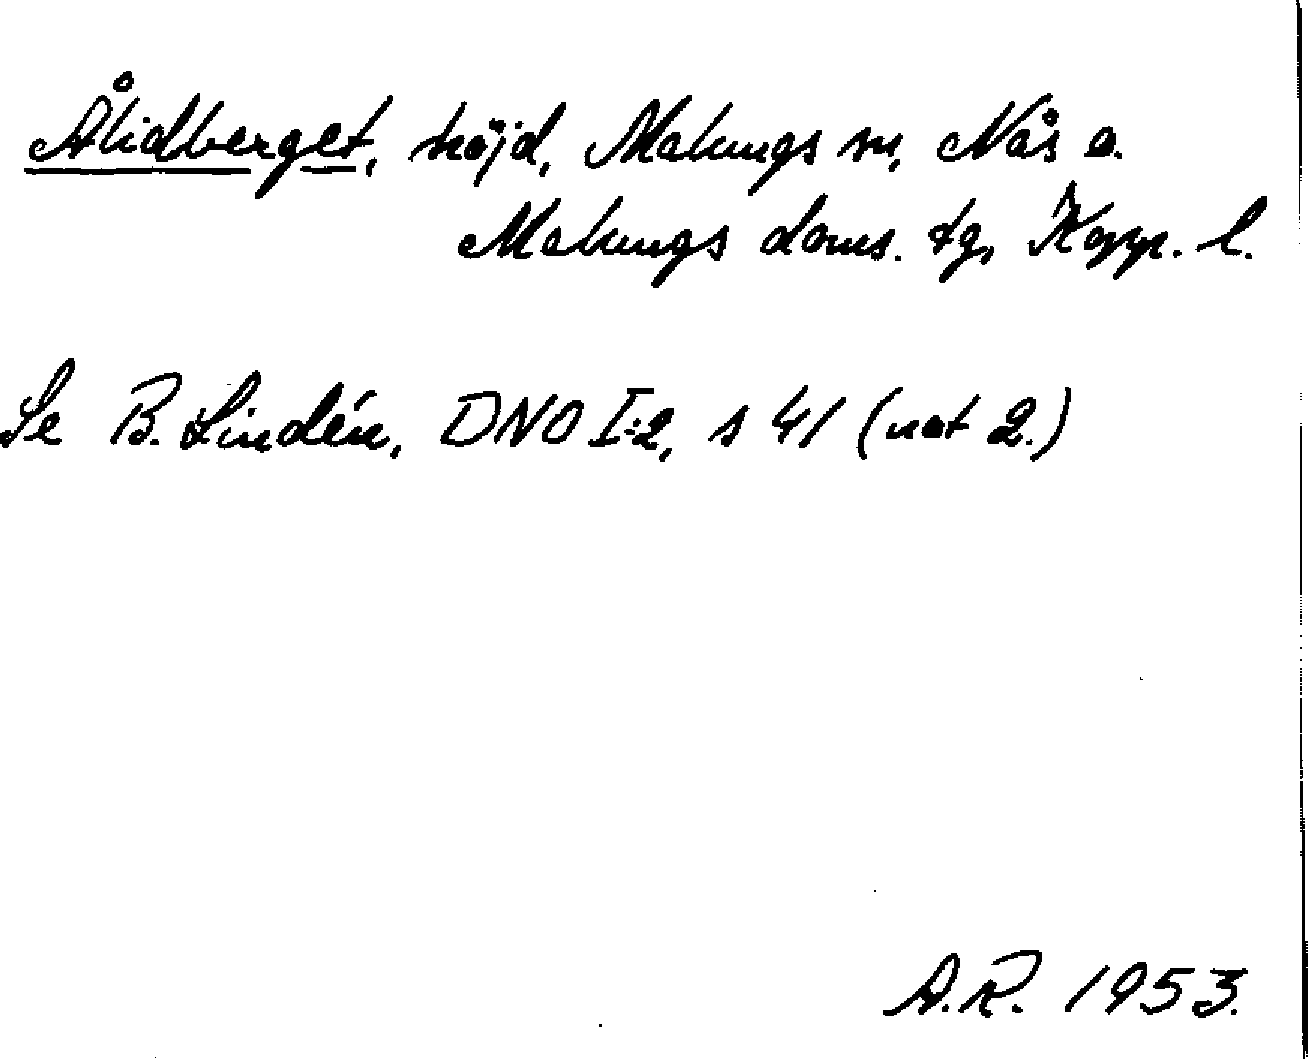 Ålidberget, höjd, Malungs sn, Nås o.
Malungs doms. tg, Kopp. l.
Se B. Lindén, DNO I:2, s 41 (not 2.)
A.R. 1953.